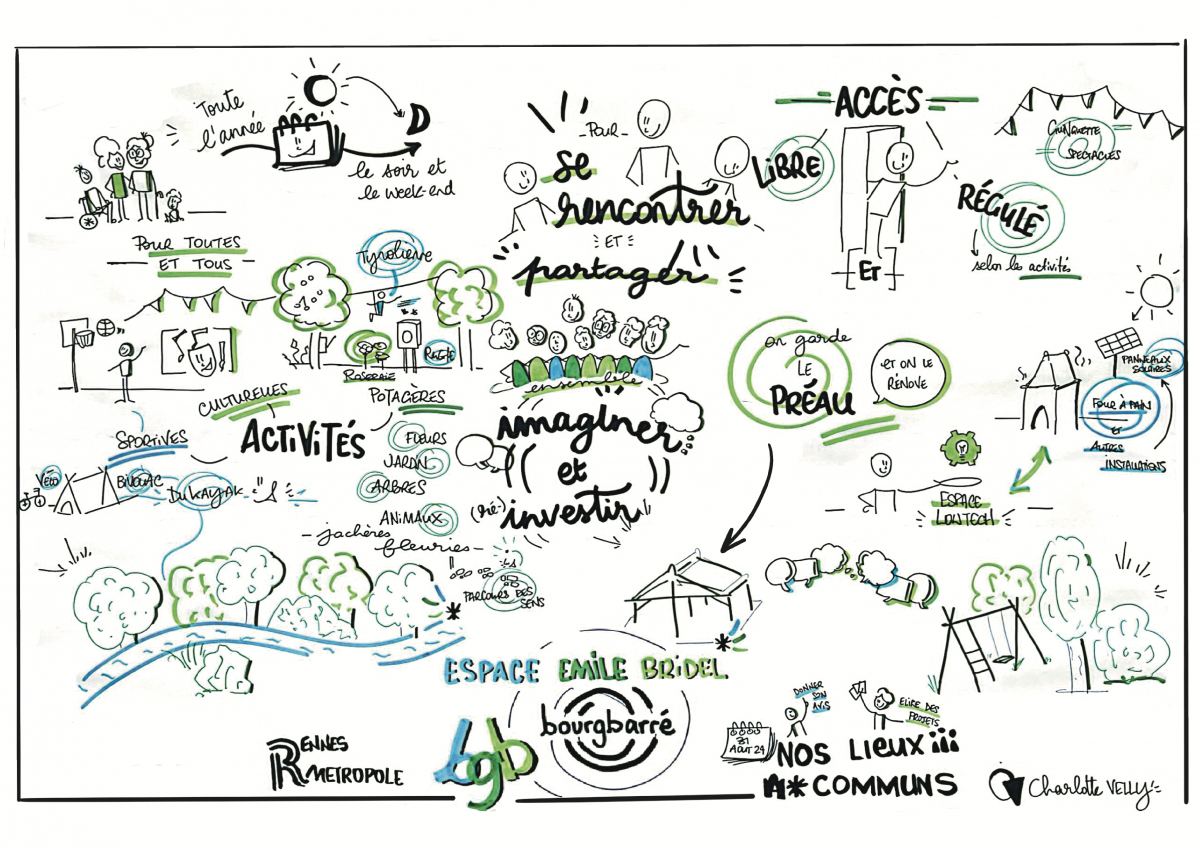 Toute
l'année
le soir et
le week-end
POUR TOUTES
ET TOUS
POUR
se
rencontrer
ET
partager
ACCÈS
LIBRE
ET
RÉGULÉ
selon les activités
GUINGUETTE
SPECTACLES
Tyrolienne
ROSERAIE
RUCHE
CULTURELLES
POTAGÈRES
SPORTIVES
ACTIVITÉS
FLEURS
JARDIN
ARBRES
ANIMAUX
- jachères
fleuries -
VÉLO
BIVOUAC
DU KAYAK
PARCOURS DES
SENS
ensemble
imaginer
et
(ré-) investir
on garde
LE
PRÉAU
et ON LE
RÉNOVE
PANNEAUX
SOLAIRES
FOUR À PAIN
ET
AUTRES
INSTALLATIONS
ESPACE
LOWTECH
ESPACE EMILE BRIDEL
bourgbarré
bgb
RENNES
METROPOLE
31
AOUT 24
DONNER
SON
AVIS
ELIRE DES
PROJETS
NOS LIEUX
COMMUNS
Charlotte VELLY